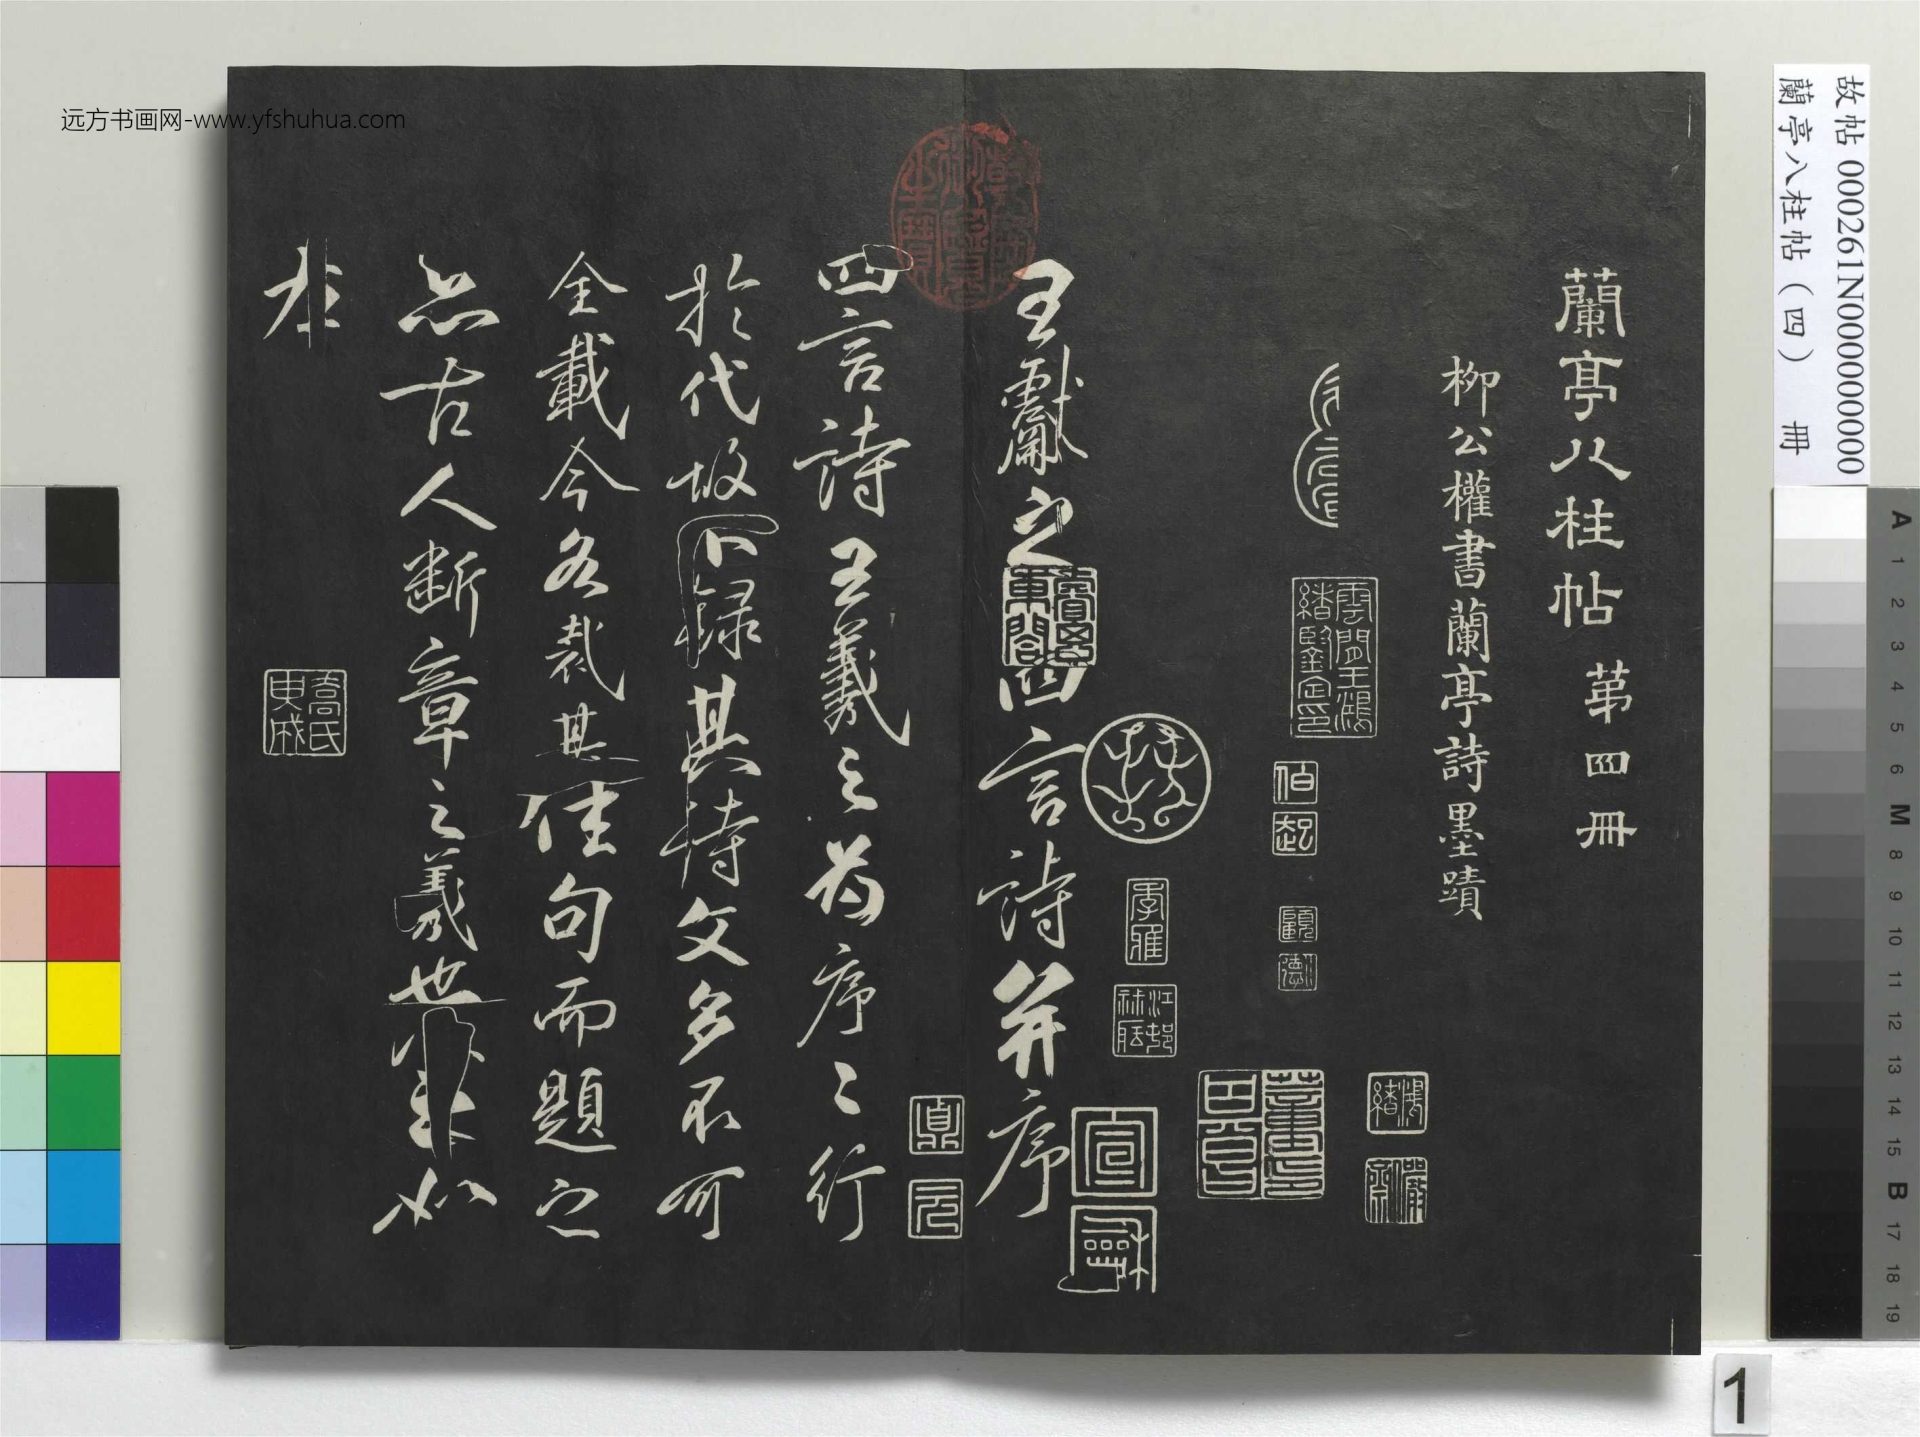 远方书画网-www.yfshuhua.com
故帖 000261N000000000
蘭亭八柱帖（四） 冊
蘭亭八柱帖 第四冊
柳公權書蘭亭詩墨蹟
王獻之四言詩并序
四言詩王羲之為序序行
於代故不錄其詩文多不可
全載今各裁其佳句而題之
亦古人斷章之義也
雲間王鴻緒鑒定印
伯起
顧
季雅
江邨
宣
鼎元
乾隆御覽之寶
A 1 2 3 4 5 6 M 8 9 10 11 12 13 14 15 B 17 18 19
1